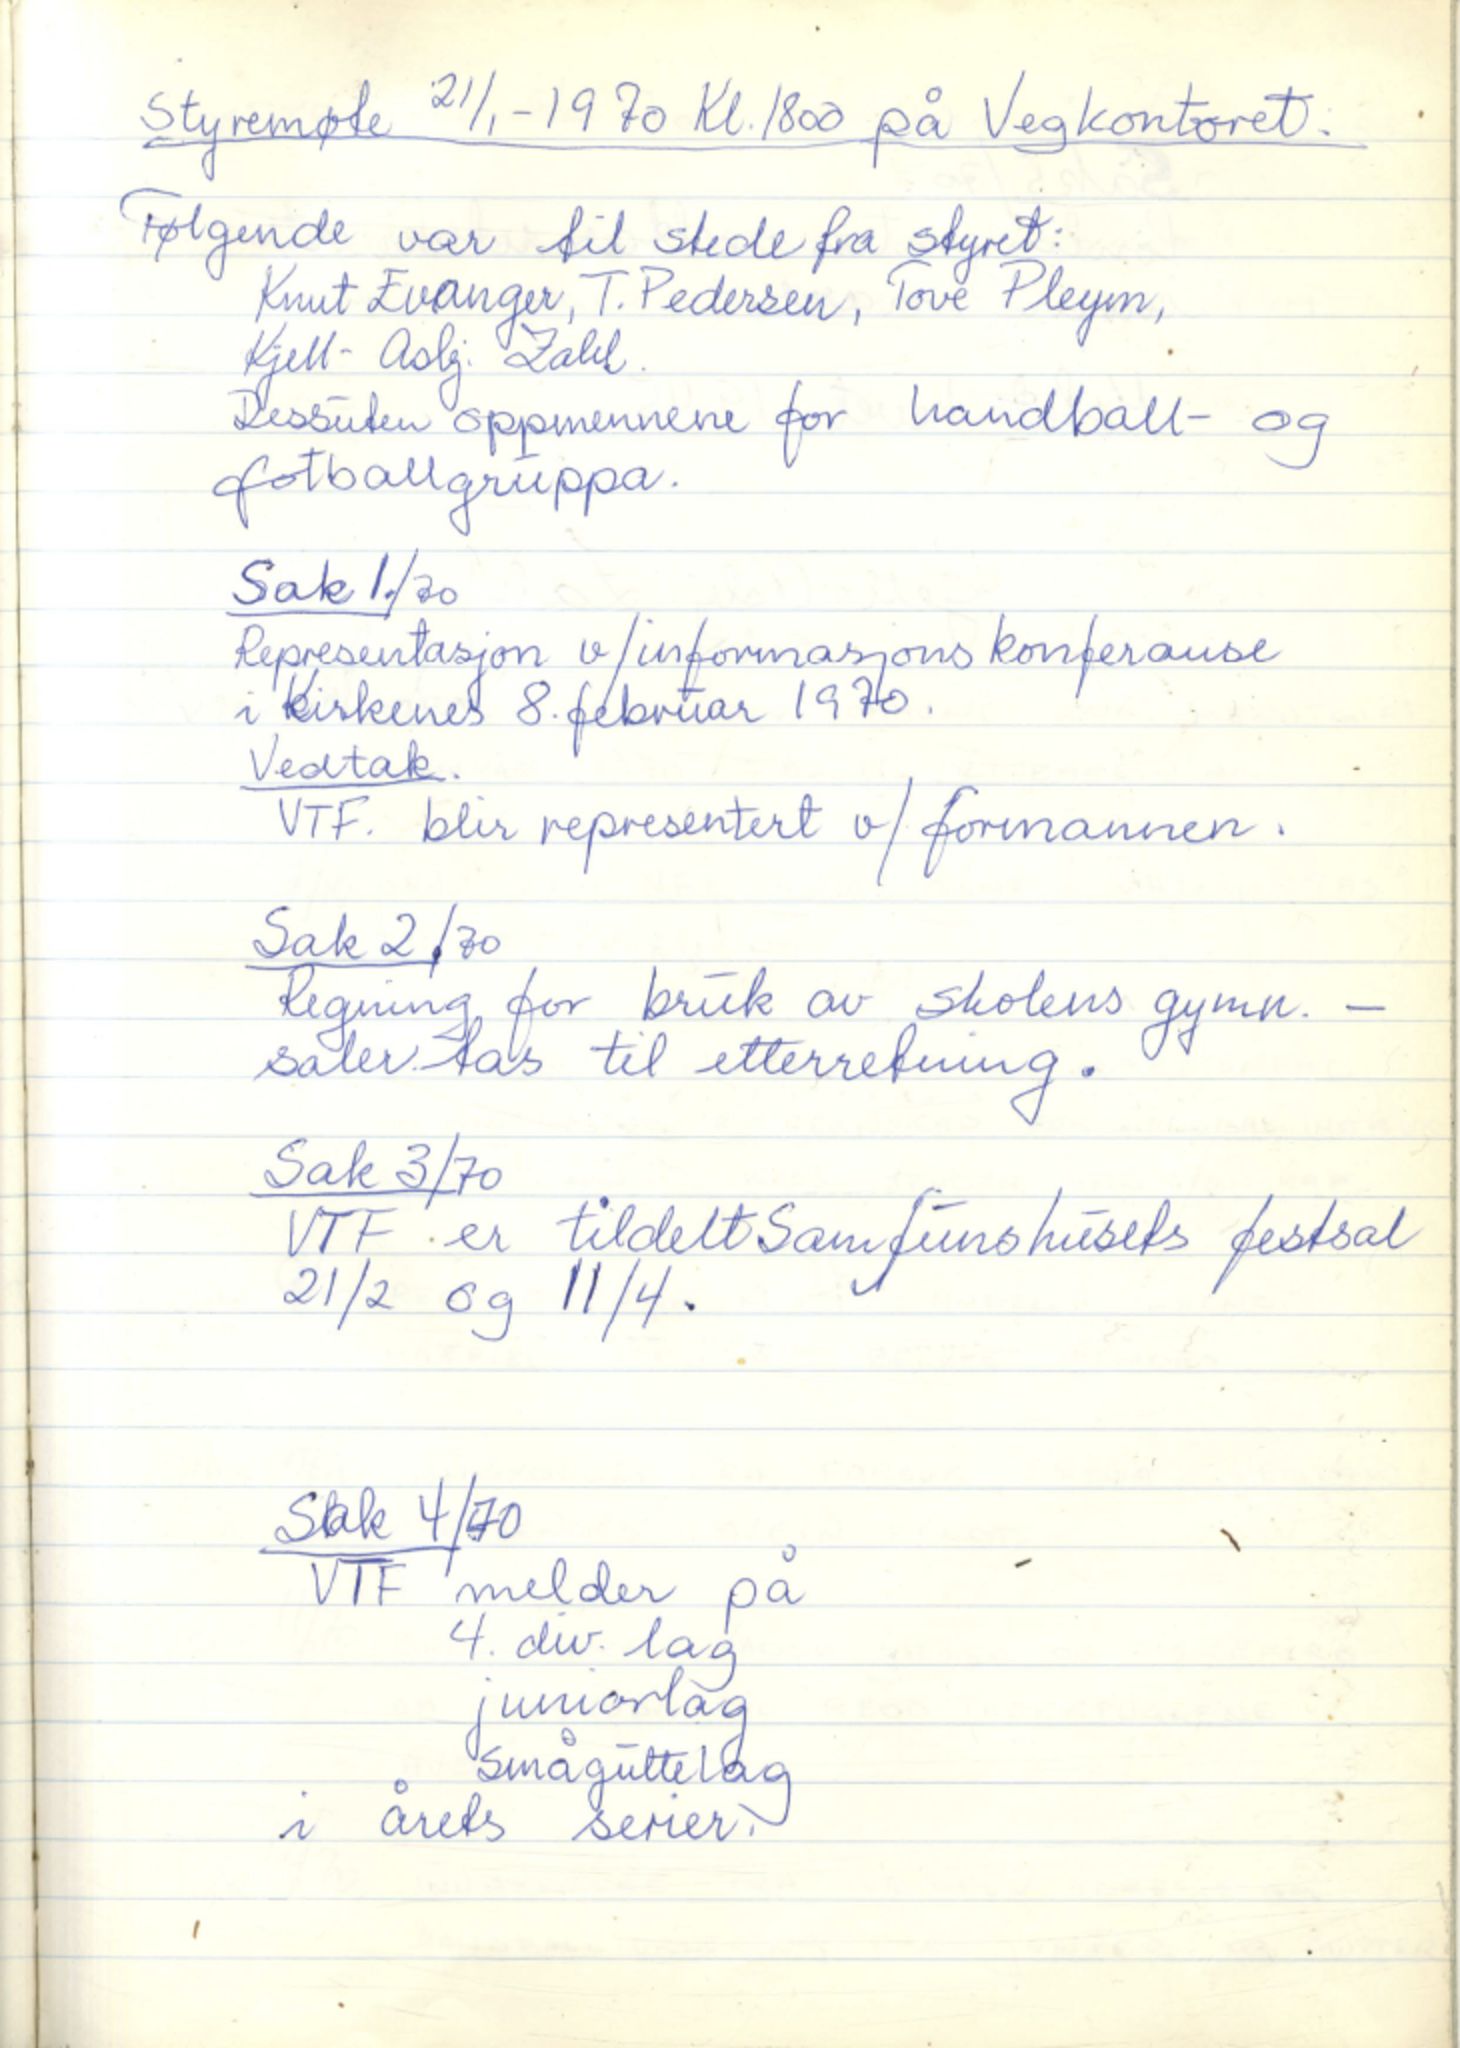 Styremøte 21/1-1970 Kl. 1800 på Vegkontoret.
Følgende var til stede fra styret:
Knut Evanger, T. Pedersen, Tove Pleym,
Kjell-Asbj. Zahl.
Dessuten oppmennene for handball- og
fotballgruppa.
Sak 1./70
Representasjon v/informasjonskonferanse
i Kirkenes 8. februar 1970.
Vedtak.
VTF. blir representert v/ formannen.
Sak 2/70
Regning for bruk av skolens gymn. -
saler tas til etterretning.
Sak 3/70
VTF er tildelt Samfunshusets festsal
21/2 og 11/4.
Sak 4/70
VTF melder på
4. div. lag
juniorlag
småguttelag
i årets serier.